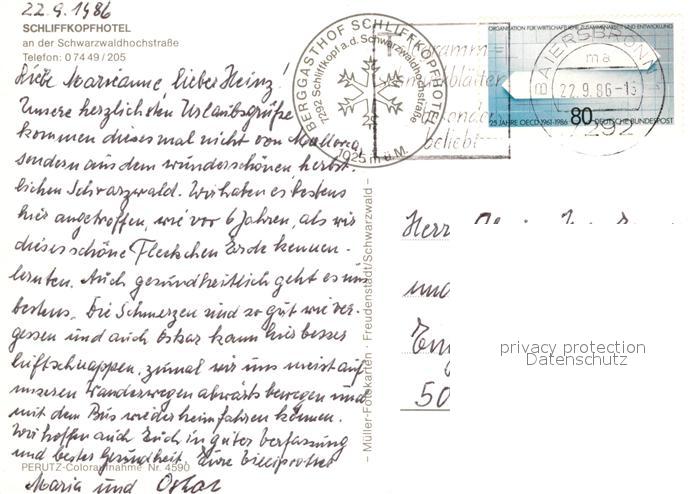 22.9.1986
SCHLIFFKOPFHOTEL
an der Schwarzwaldhochstraße
Telefon: 07449/205
Liebe Marianne, lieber Heinz!
Unsere herzlichsten Urlaubsgrüße
kommen diesesmal nicht von Mallorca,
sondern aus dem wunderschönen, herbst-
lichen Schwarzwald. Wir haben es bestens
hier angetroffen, wie vor 6 Jahren, als wir
dieses schöne Fleckchen Erde kennen-
lernten. Auch gesundheitlich geht es uns
bestens. Die Schmerzen sind so gut wie ver-
gessen und auch Oskar kann hier besser
luftschnappen, zumal wir uns meist auf
unseren Wanderwegen abwärts bewegen und
mit dem Bus wieder heimfahren können.
Wir hoffen auch Euch in guter Verfassung
und bester Gesundheit. Eure
Maria und Oskar
PERUTZ-Coloraufnahme Nr. 4590
– Müller-Fotokarten · Freudenstadt/Schwarzwald –
BERGGASTHOF SCHLIFFKOPFHOTEL
7292 Schliffkopf a.d. Schwarzwaldhochstraße
1025 m ü.M.
beliebt
ORGANISATION FÜR WIRTSCHAFTLICHE ZUSAMMENARBEIT UND ENTWICKLUNG
25 JAHRE OECD 1961-1986
80
DEUTSCHE BUNDESPOST
BAIERSBRONN
ma
22.9.86-13
7292
Herr
und
50
privacy protection
Datenschutz